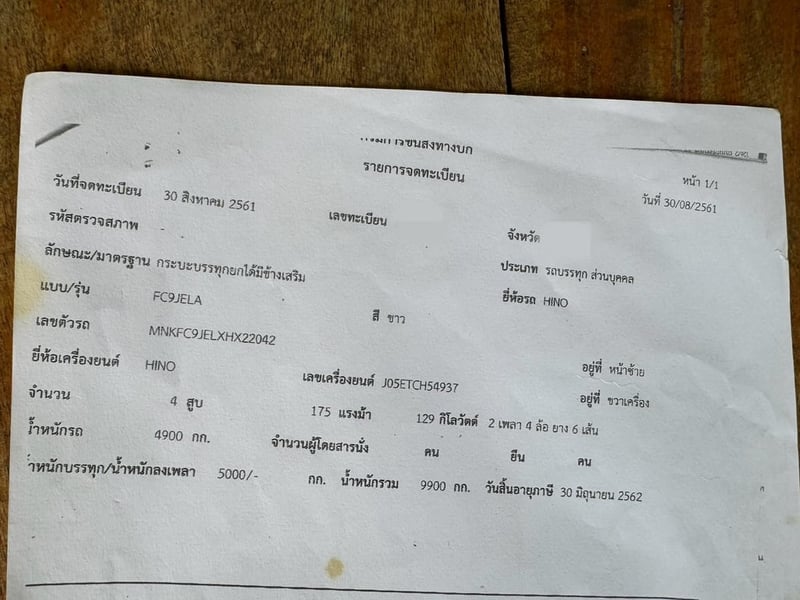 กรมการขนส่งทางบก
รายการจดทะเบียน
หน้า 1/1
วันที่ 30/08/2561
วันที่จดทะเบียน 30 สิงหาคม 2561 เลขทะเบียน จังหวัด
รหัสตรวจสภาพ ประเภท รถบรรทุก ส่วนบุคคล
ลักษณะ/มาตรฐาน กระบะบรรทุกยกได้มีข้างเสริม ยี่ห้อรถ HINO
แบบ/รุ่น FC9JELA สี ขาว
เลขตัวรถ MNKFC9JELXHX22042 อยู่ที่ หน้าซ้าย
ยี่ห้อเครื่องยนต์ HINO เลขเครื่องยนต์ J05ETCH54937 อยู่ที่ ขวาเครื่อง
จำนวน 4 สูบ 175 แรงม้า 129 กิโลวัตต์ 2 เพลา 4 ล้อ ยาง 6 เส้น
น้ำหนักรถ 4900 กก. จำนวนผู้โดยสารนั่ง คน ยืน คน
น้ำหนักบรรทุก/น้ำหนักลงเพลา 5000/- กก. น้ำหนักรวม 9900 กก. วันสิ้นอายุภาษี 30 มิถุนายน 2562